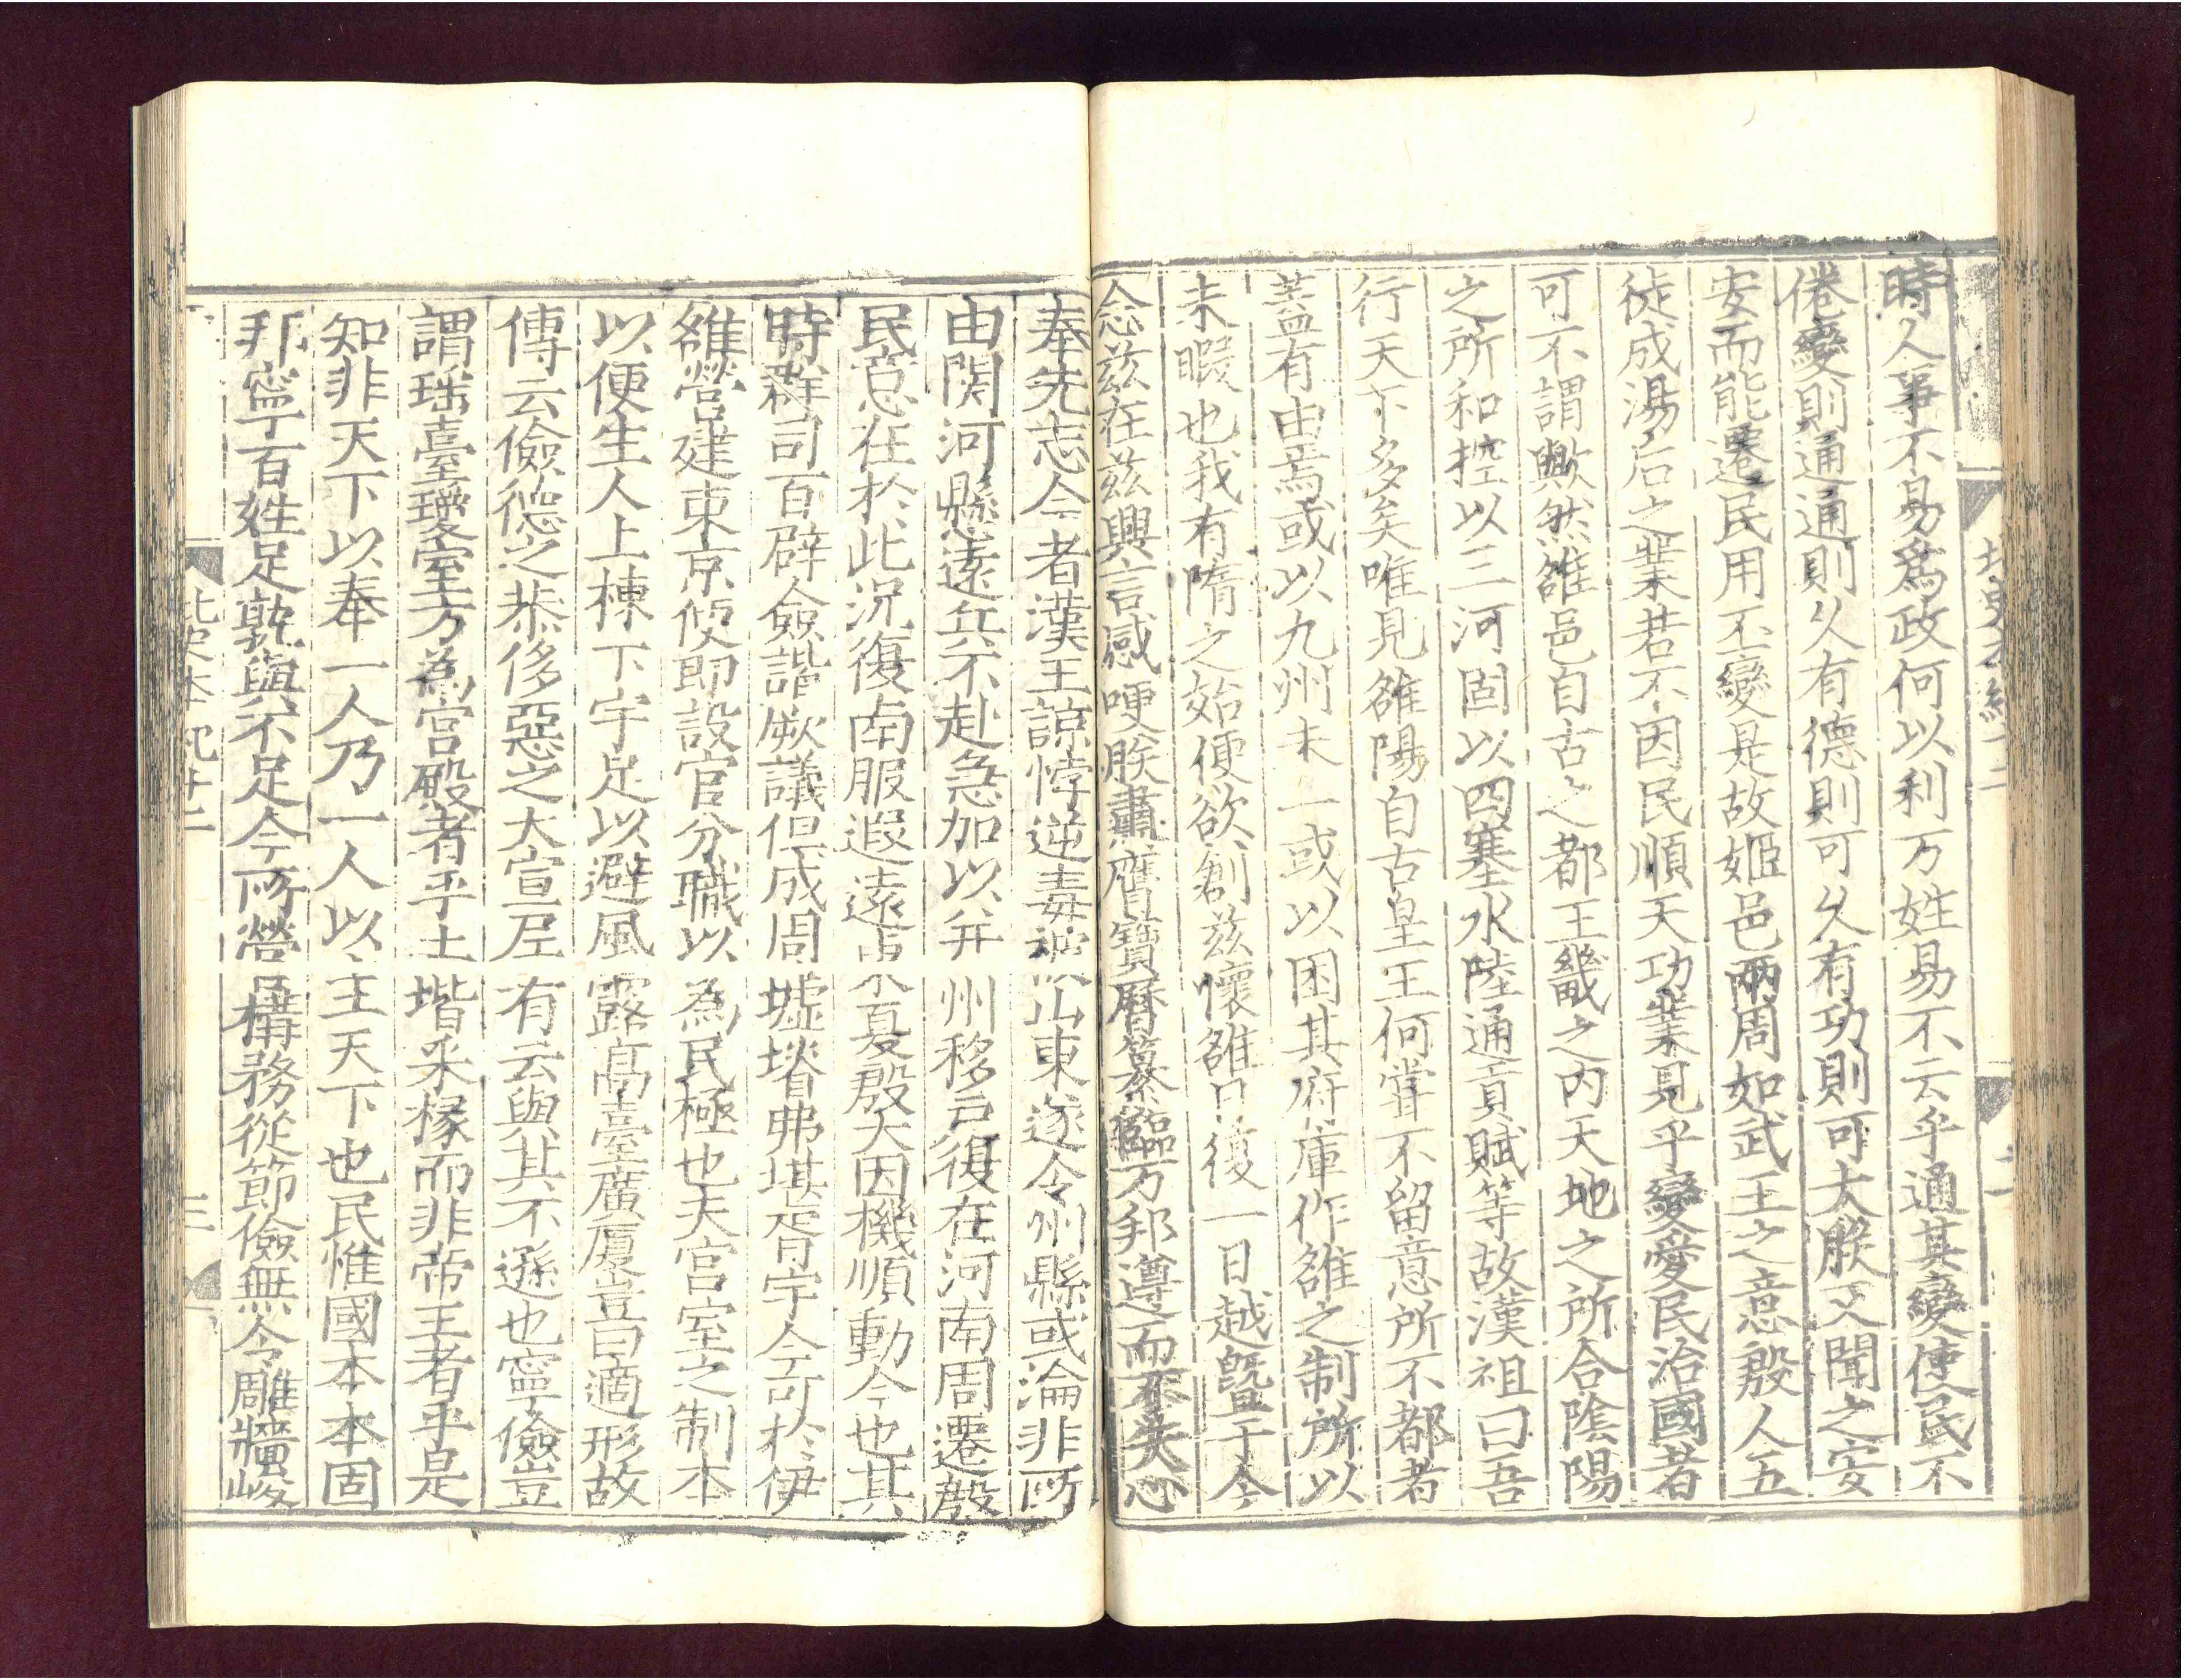 時人事不易爲政何以利万姓易不云乎通其變使民不
倦變則通通則久有德則可久有功則可大朕又聞之安
安而能遷民用丕變是故姬邑兩周如武王之意殷人五
徙成湯后之業若不因民順天功業見乎變愛民治國者
可不謂歟然雒邑自古之都王畿之内天地之所合陰陽
之所和控以三河固以四塞水陸通貢賦等故漢祖曰吾
行天下多矣唯見雒陽自古皇王何甞不留意所不都者
蓋有由焉或以九州未一或以困其府庫作雒之制所以
未暇也我有隋之始便欲創兹懷雒日復一日越曁于今
念兹在兹興言感哽朕肅膺寶曆纂臨万邦遵而不失心
奉先志今者漢王諒悖逆毒被山東遂令州縣或淪非所
由関河縣遠兵不赴急加以并州移戸復在河南周遷殷
民意在於此況復南服遐遠東夏殷大因機順動今也其
時群司百辟僉諧厥議但成周墟塉弗堪胥宇今可於伊
雒營建東京便即設官分職以為民極也夫宫室之制本
以便生人上棟下宇足以避風露高臺廣厦豈曰適形故
傳云儉德之恭侈惡之大宣尼有云與其不遜也寧儉豈
謂瑶臺瓊室方為宫殿者乎土堦采椽而非帝王者乎是
知非天下以奉一人乃一人以主天下也民惟國本本固
邦寧百姓足孰與不足今所營構務從節儉無令雕牆峻
北史本紀十二
三